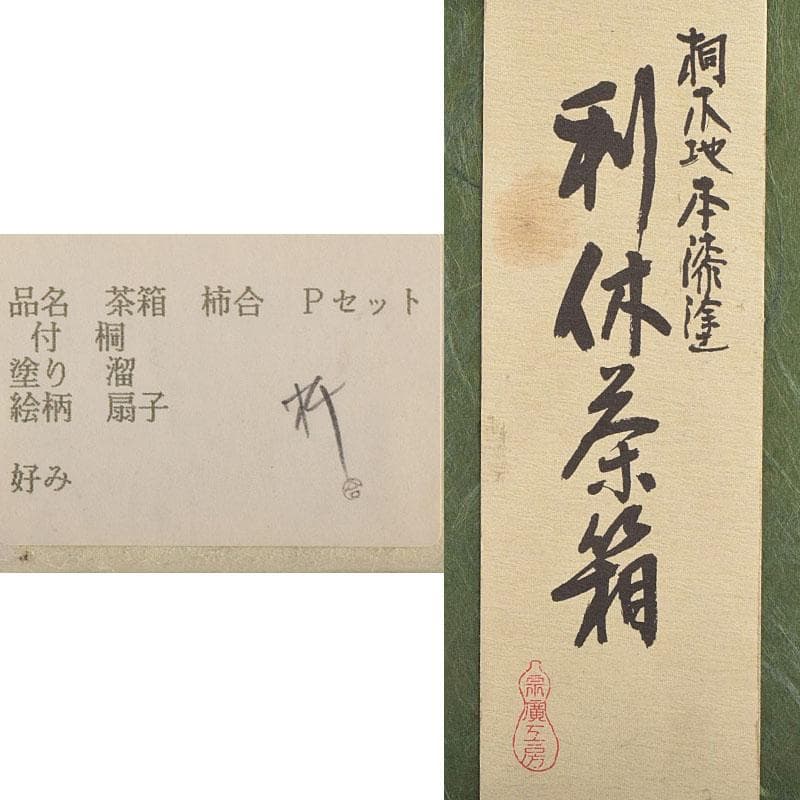 品名 茶箱 柿合 Pセット
付 桐
塗り 溜
絵柄 扇子
好み
桐木地本漆塗
利休茶箱
宗廣工房